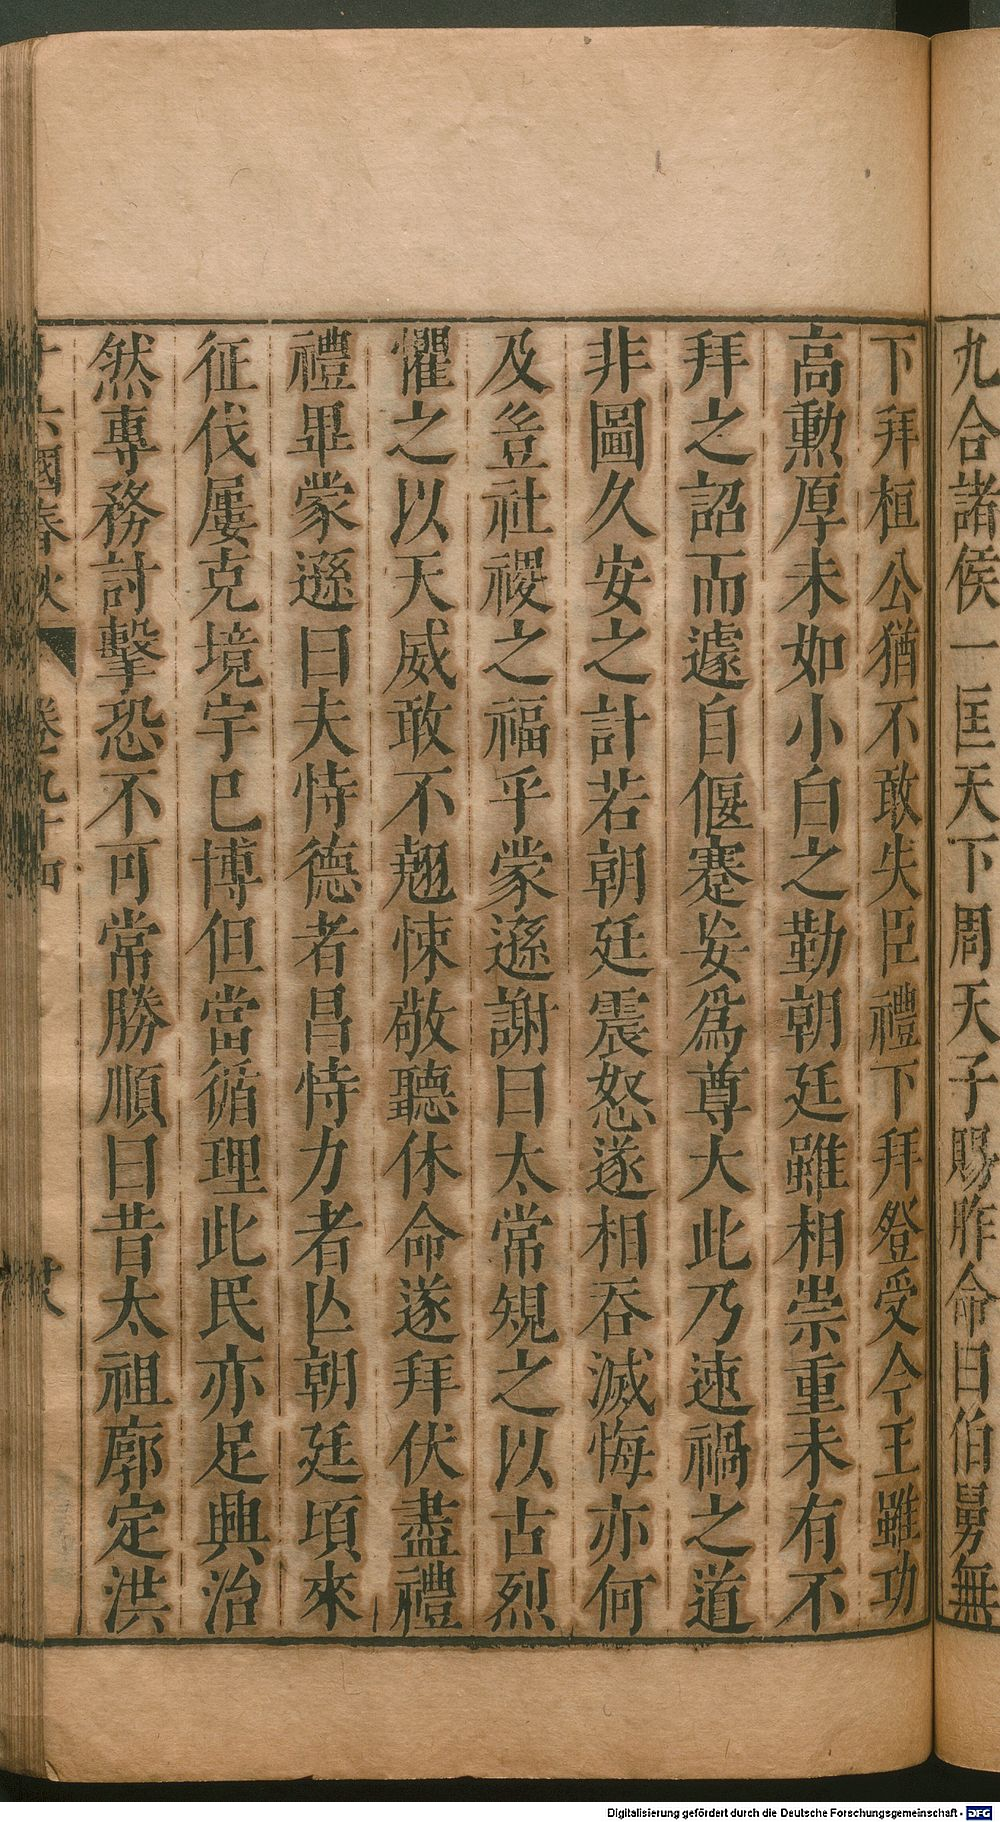 九合諸侯一匡天下周天子賜胙命曰伯舅無
下拜桓公猶不敢失臣禮下拜登受今王雖功
高勲厚未如小白之勤朝廷雖相崇重未有不
拜之詔而遽自偃蹇妄爲尊大此乃速禍之道
非圖久安之計若朝廷震怒遂相吞滅悔亦何
及豈社稷之福乎蒙遜謝曰太常規之以古烈
懼之以天威敢不翹悚敬聽休命遂拜伏盡禮
禮畢蒙遜曰夫恃德者昌恃力者亾朝廷頃來
征伐屢克境宇已博但當循理此民亦足興治
然專務討擊恐不可常勝順曰昔太祖廓定洪
十六國春秋 卷九十四
Digitalisierung gefördert durch die Deutsche Forschungsgemeinschaft - DFG